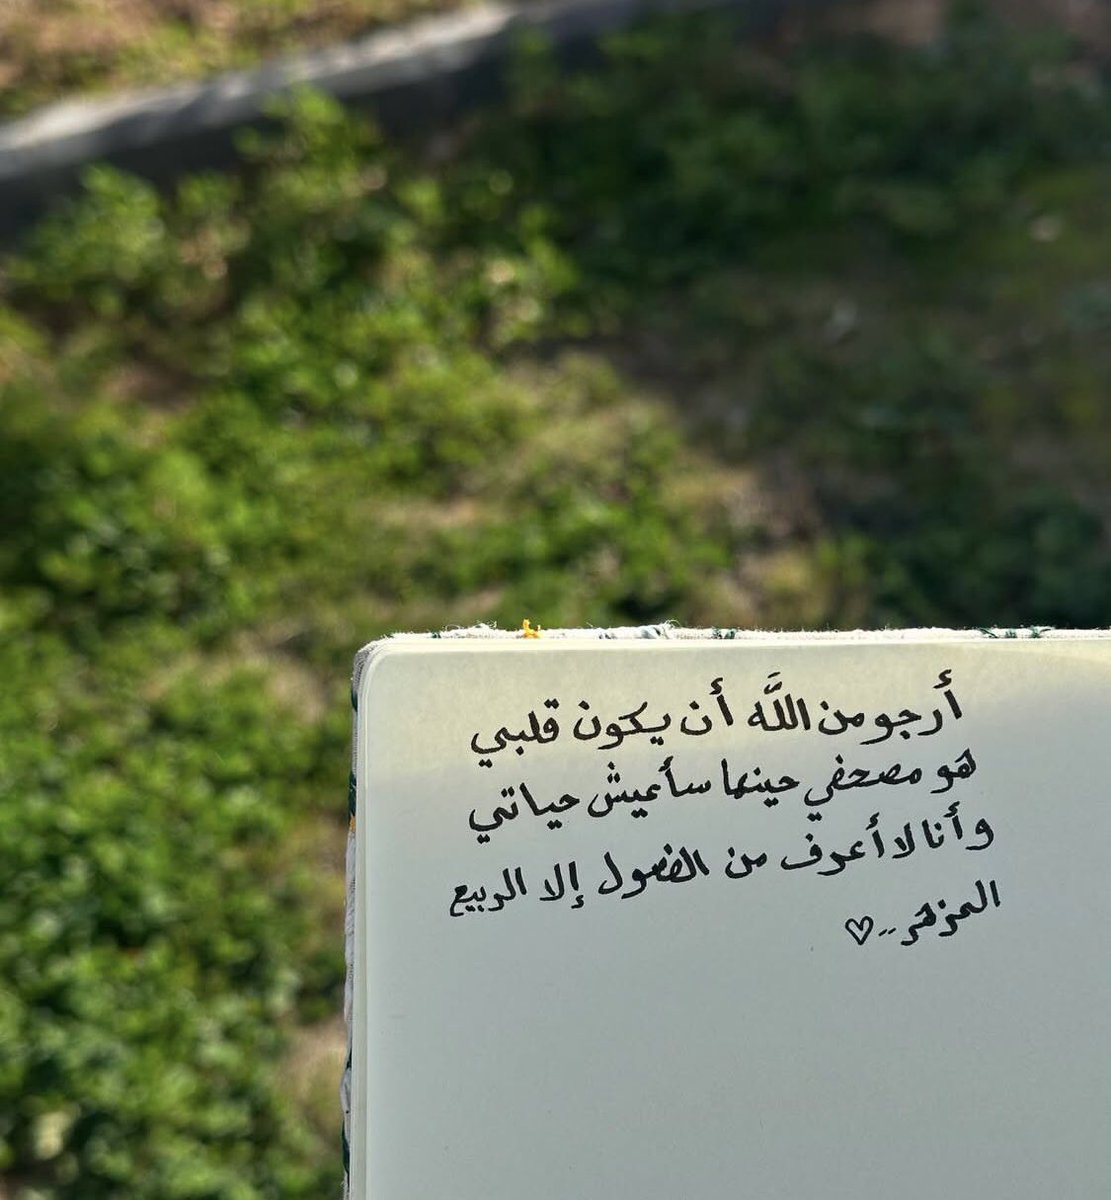 أرجو من اللَّه أن يكون قلبي
هو مصحفي حينها سأعيش حياتي
وأنا لا أعرف من الفصول إلا الربيع
المزهر..♡